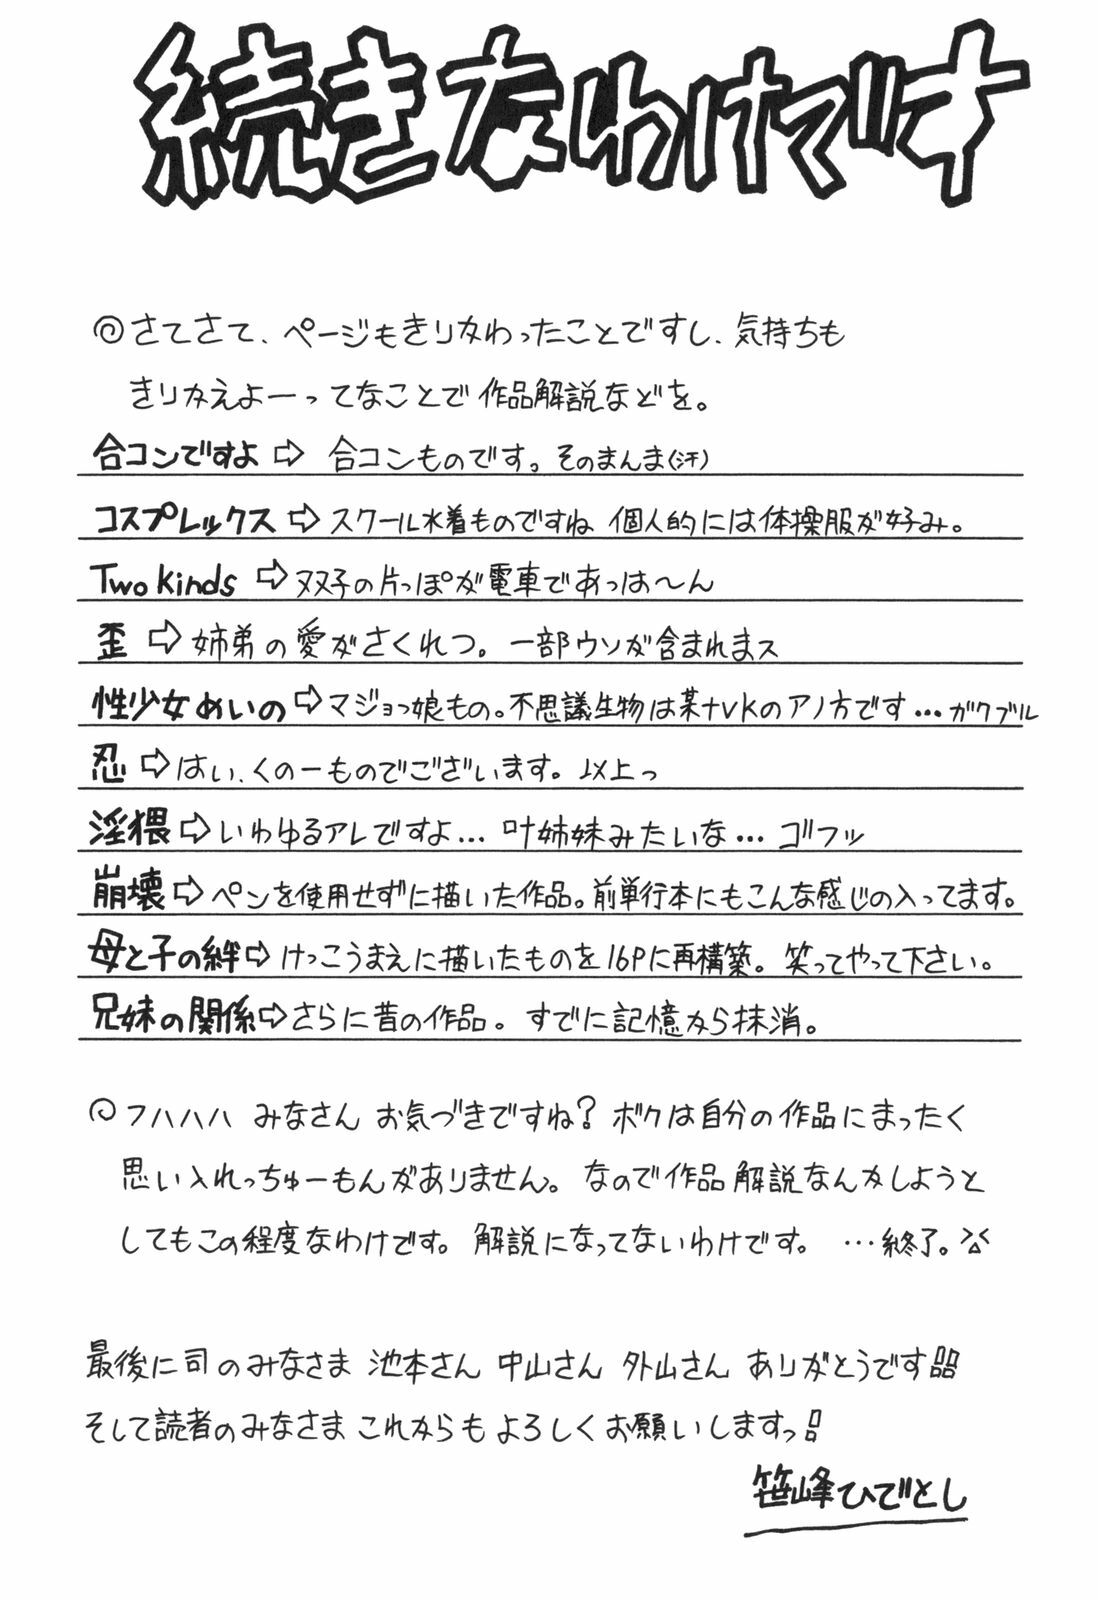 続きなわけです
◎さてさて、ページもきりかわったことですし、気持ちも
きりかえよーってなことで作品解説などを。
合コンですよ⇨ 合コンものです。そのまんま(汗)
コスプレックス⇨スクール水着ものですね 個人的には体操服が好み。
Two Kinds ⇨双子の片っぽが電車であっは〜ん
歪 ⇨姉弟の愛がさくれつ。一部ウソが含まれまス
性少女めいの⇨マジョっ娘もの。不思議生物は某+VKのアノ方です…ガクブル
忍⇨はい、くの一ものでございます。以上っ
淫猥⇨いわゆるアレですよ… 叶姉妹みたいな… ゴフッ
崩壊⇨ペンを使用せずに描いた作品。前単行本にもこんな感じの入ってます。
母と子の絆⇨けっこうまえに描いたものを16Pに再構築。笑ってやって下さい。
兄妹の関係⇨さらに昔の作品。すでに記憶から抹消。
◎フハハハ みなさん お気づきですね?ボクは自分の作品にまったく
思い入れっちゅーもんがありません。なので作品解説なんかしようと
してもこの程度なわけです。解説になってないわけです。 …終了。
最後に司のみなさま 池本さん 中山さん 外山さん ありがとうです!!
そして読者のみなさまこれからもよろしくお願いしますっ!
笹峰ひでとし